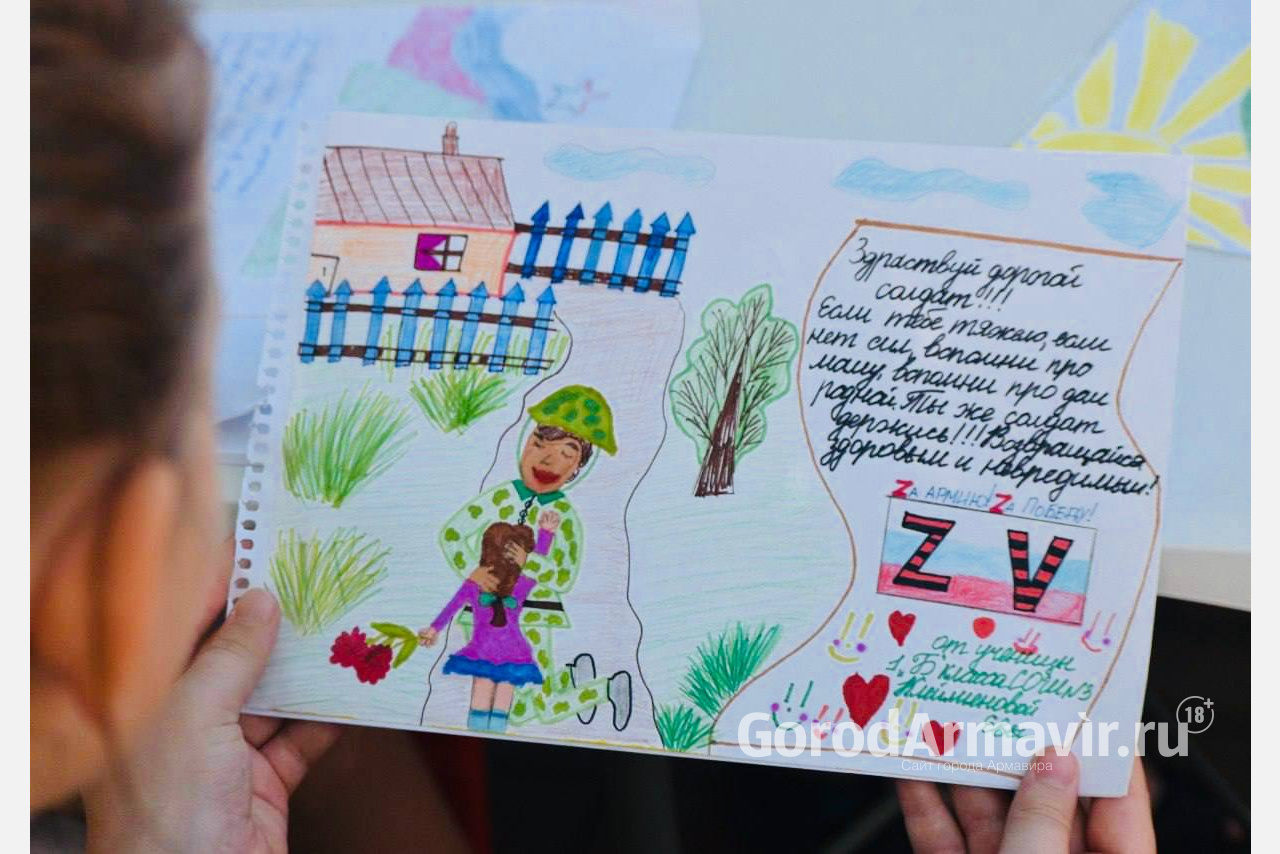 Здраствуй дорогой
солдат!!!
Если тебе тяжело, если
нет сил, вспомни про
маму, вспомни про дом
родной. Ты же солдат
держись!!! Возвращайся
здоровым и невредимым!
Zа АРМИЮ! Zа ПОБЕДУ!
Z V
от ученицы
1,,Б класса СОШ№3
Клименовой
GorodArmavir.ru 18+
Сайт города Армавира